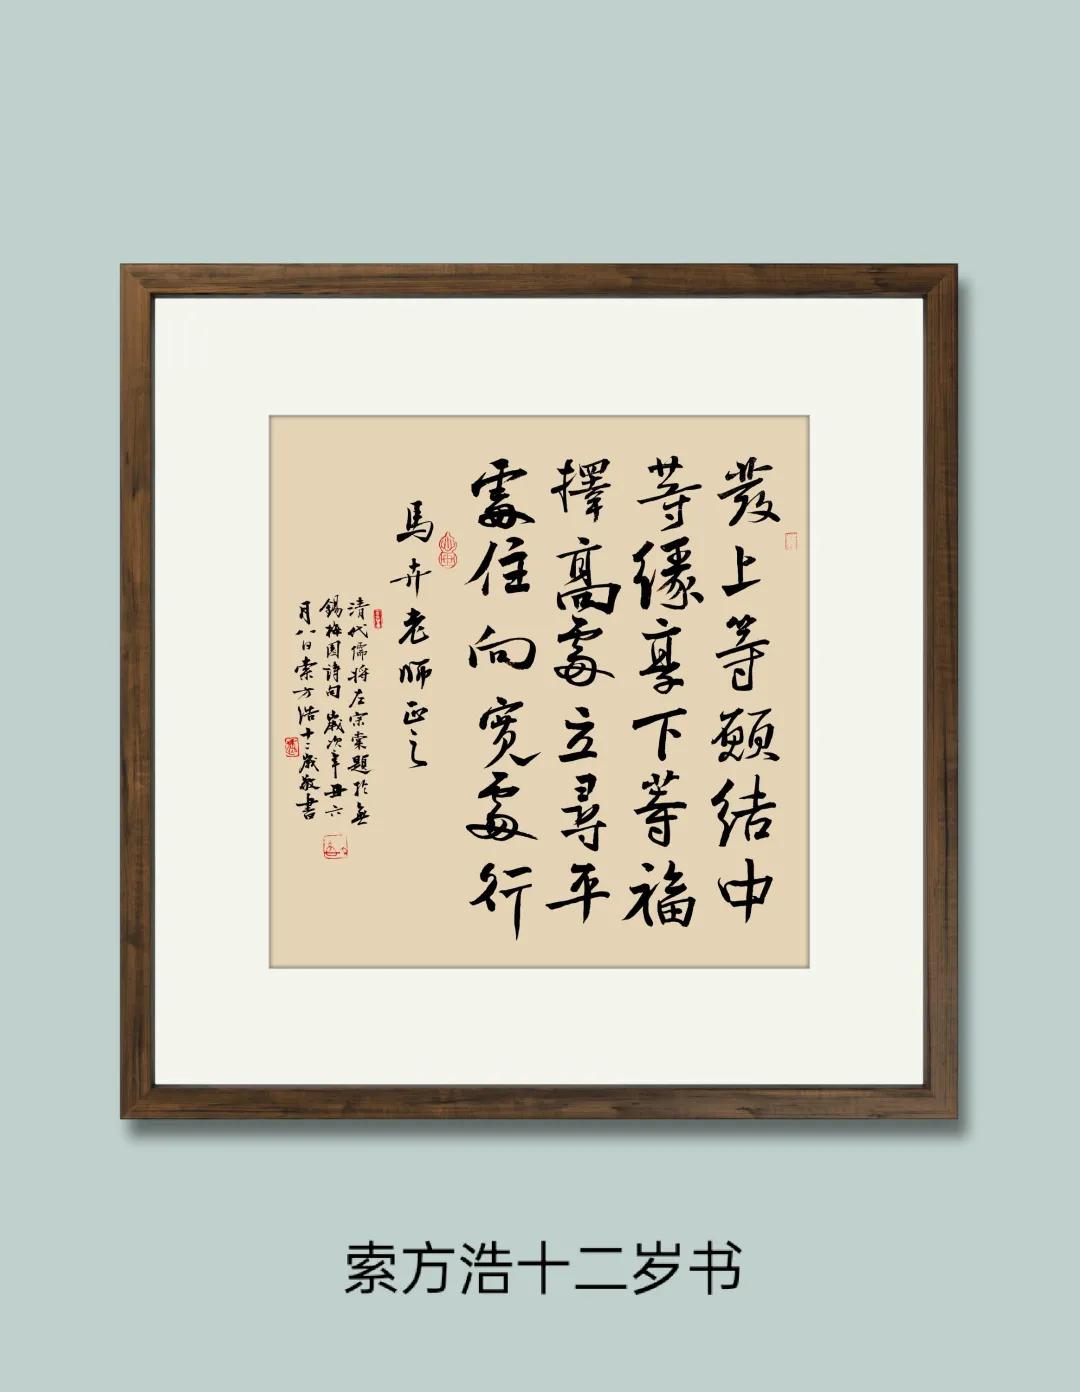 發上等願結中
等緣享下等福
擇高處立尋平
處住向寬處行
馬卉老師正之
清代儒將左宗棠題於無
錫梅園詩句歲次辛丑六
月八日索方浩十二歲敬書
索方浩十二岁书